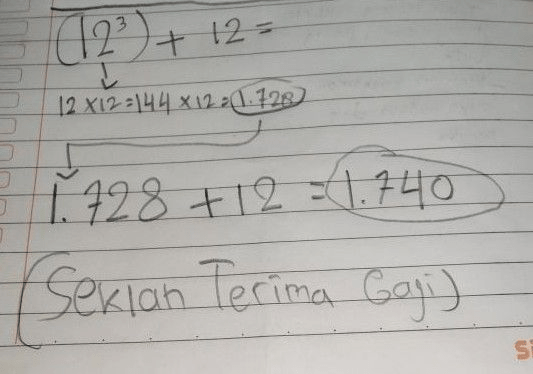 (12³) + 12 =
12 × 12 = 144 × 12 = 1.728
1.728 + 12 = 1.740
(Seklan Terima Gaji)